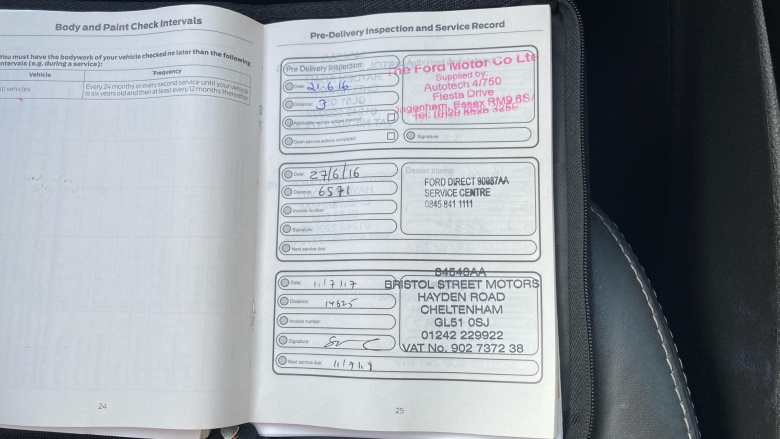 Body and Paint Check Intervals
You must have the bodywork of your vehicle checked no later than the following
intervals (e.g. during a service):
Vehicle
Frequency
All vehicles
Every 24 months or every second service until your vehicle
is six years old and then at least every 12 months thereafter
24
Pre-Delivery Inspection and Service Record
Pre Delivery Inspection
Date: 21.6.16
Distance: 3
Open service actions completed
The Ford Motor Co Ltd
Supplied by:
Autotech 4/750
Fiesta Drive
Dagenham, Essex RM9 6SA
Signature:
Date: 27/6/16
Distance: 6591
Invoice number:
Signature:
Next service due:
Dealer stamp
FORD DIRECT 90987AA
SERVICE CENTRE
0845 841 1111
Date: 11/7/17
Distance: 14625
Invoice number:
Signature:
Next service due: 11/7/18
84548AA
BRISTOL STREET MOTORS
HAYDEN ROAD
CHELTENHAM
GL51 0SJ
01242 229922
VAT No. 902 7372 38
25